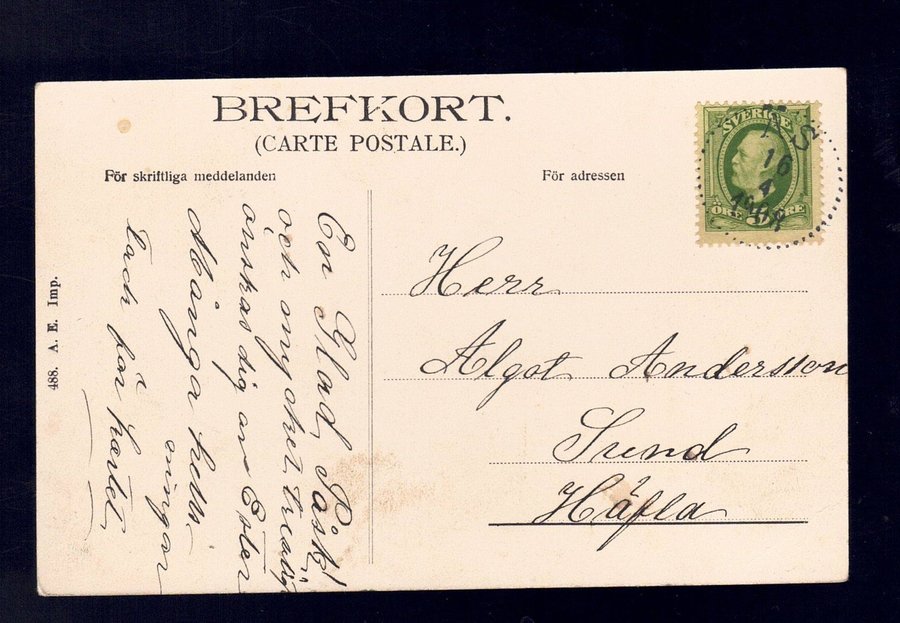 BREFKORT.
(CARTE POSTALE.)
För skriftliga meddelanden
För adressen
SVERIGE
ÖRE 5 ÖRE
16
4
488. A. E. Imp.
En Glad Påsk!
och mycket trevlig
önskas dig av Ester
Många hells-
ningar
tack för kortet,
Herr
Algot Andersson
Sund
Häfla